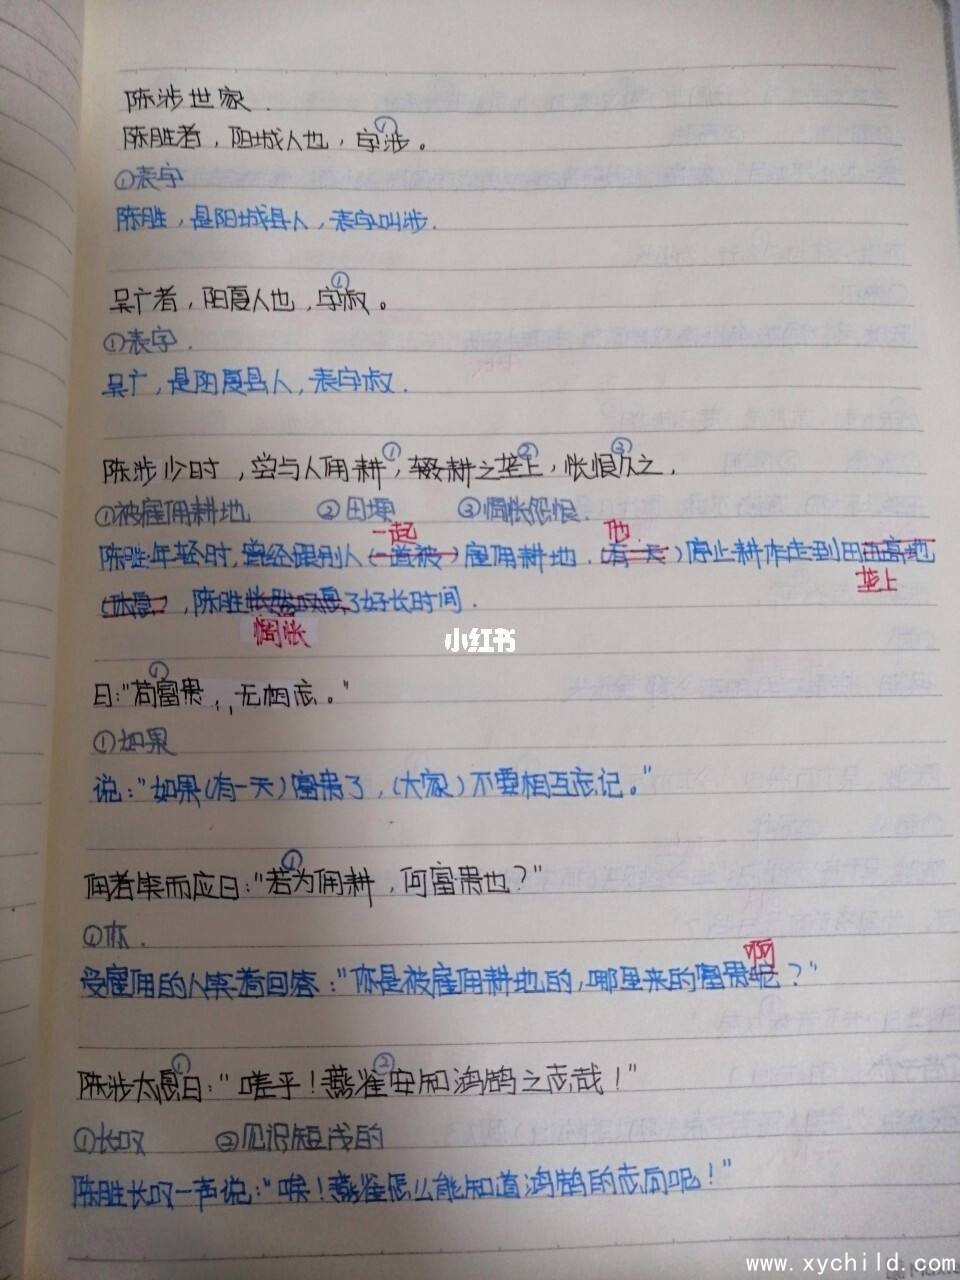 陈涉世家.
陈胜者，阳城人也，字涉。①
①表字
陈胜，是阳城县人，表字叫涉.
吴广者，阳夏人也，字叔。①
①表字.
吴广，是阳夏县人，表字叔.
陈涉少时，尝与人佣耕①，辍耕之垄上②，怅恨③久之.
①被雇佣耕地 ②田埂 ③惆怅怨恨.
一起 他
陈胜年轻时,曾经跟别人(一道被)雇佣耕地.(有一天)停止耕作走到田
垄上
(休息)，陈胜了好长时间.
惆怅
小红书
曰："苟①富贵，无相忘。"
①如果
说："如果(有一天)富贵了，(大家)不要相互忘记。"
佣者笑而应曰："若①为佣耕，何富贵也？"
①你.
啊
受雇佣的人笑着回答："你是被雇佣耕地的,哪里来的富贵呢？"
陈涉太息①曰："嗟乎！燕雀②安知鸿鹄之志哉！"
①长叹 ②见识短浅的
陈胜长叹一声说："唉！燕雀怎么能知道鸿鹄的志向呢！"
www.xychild.com